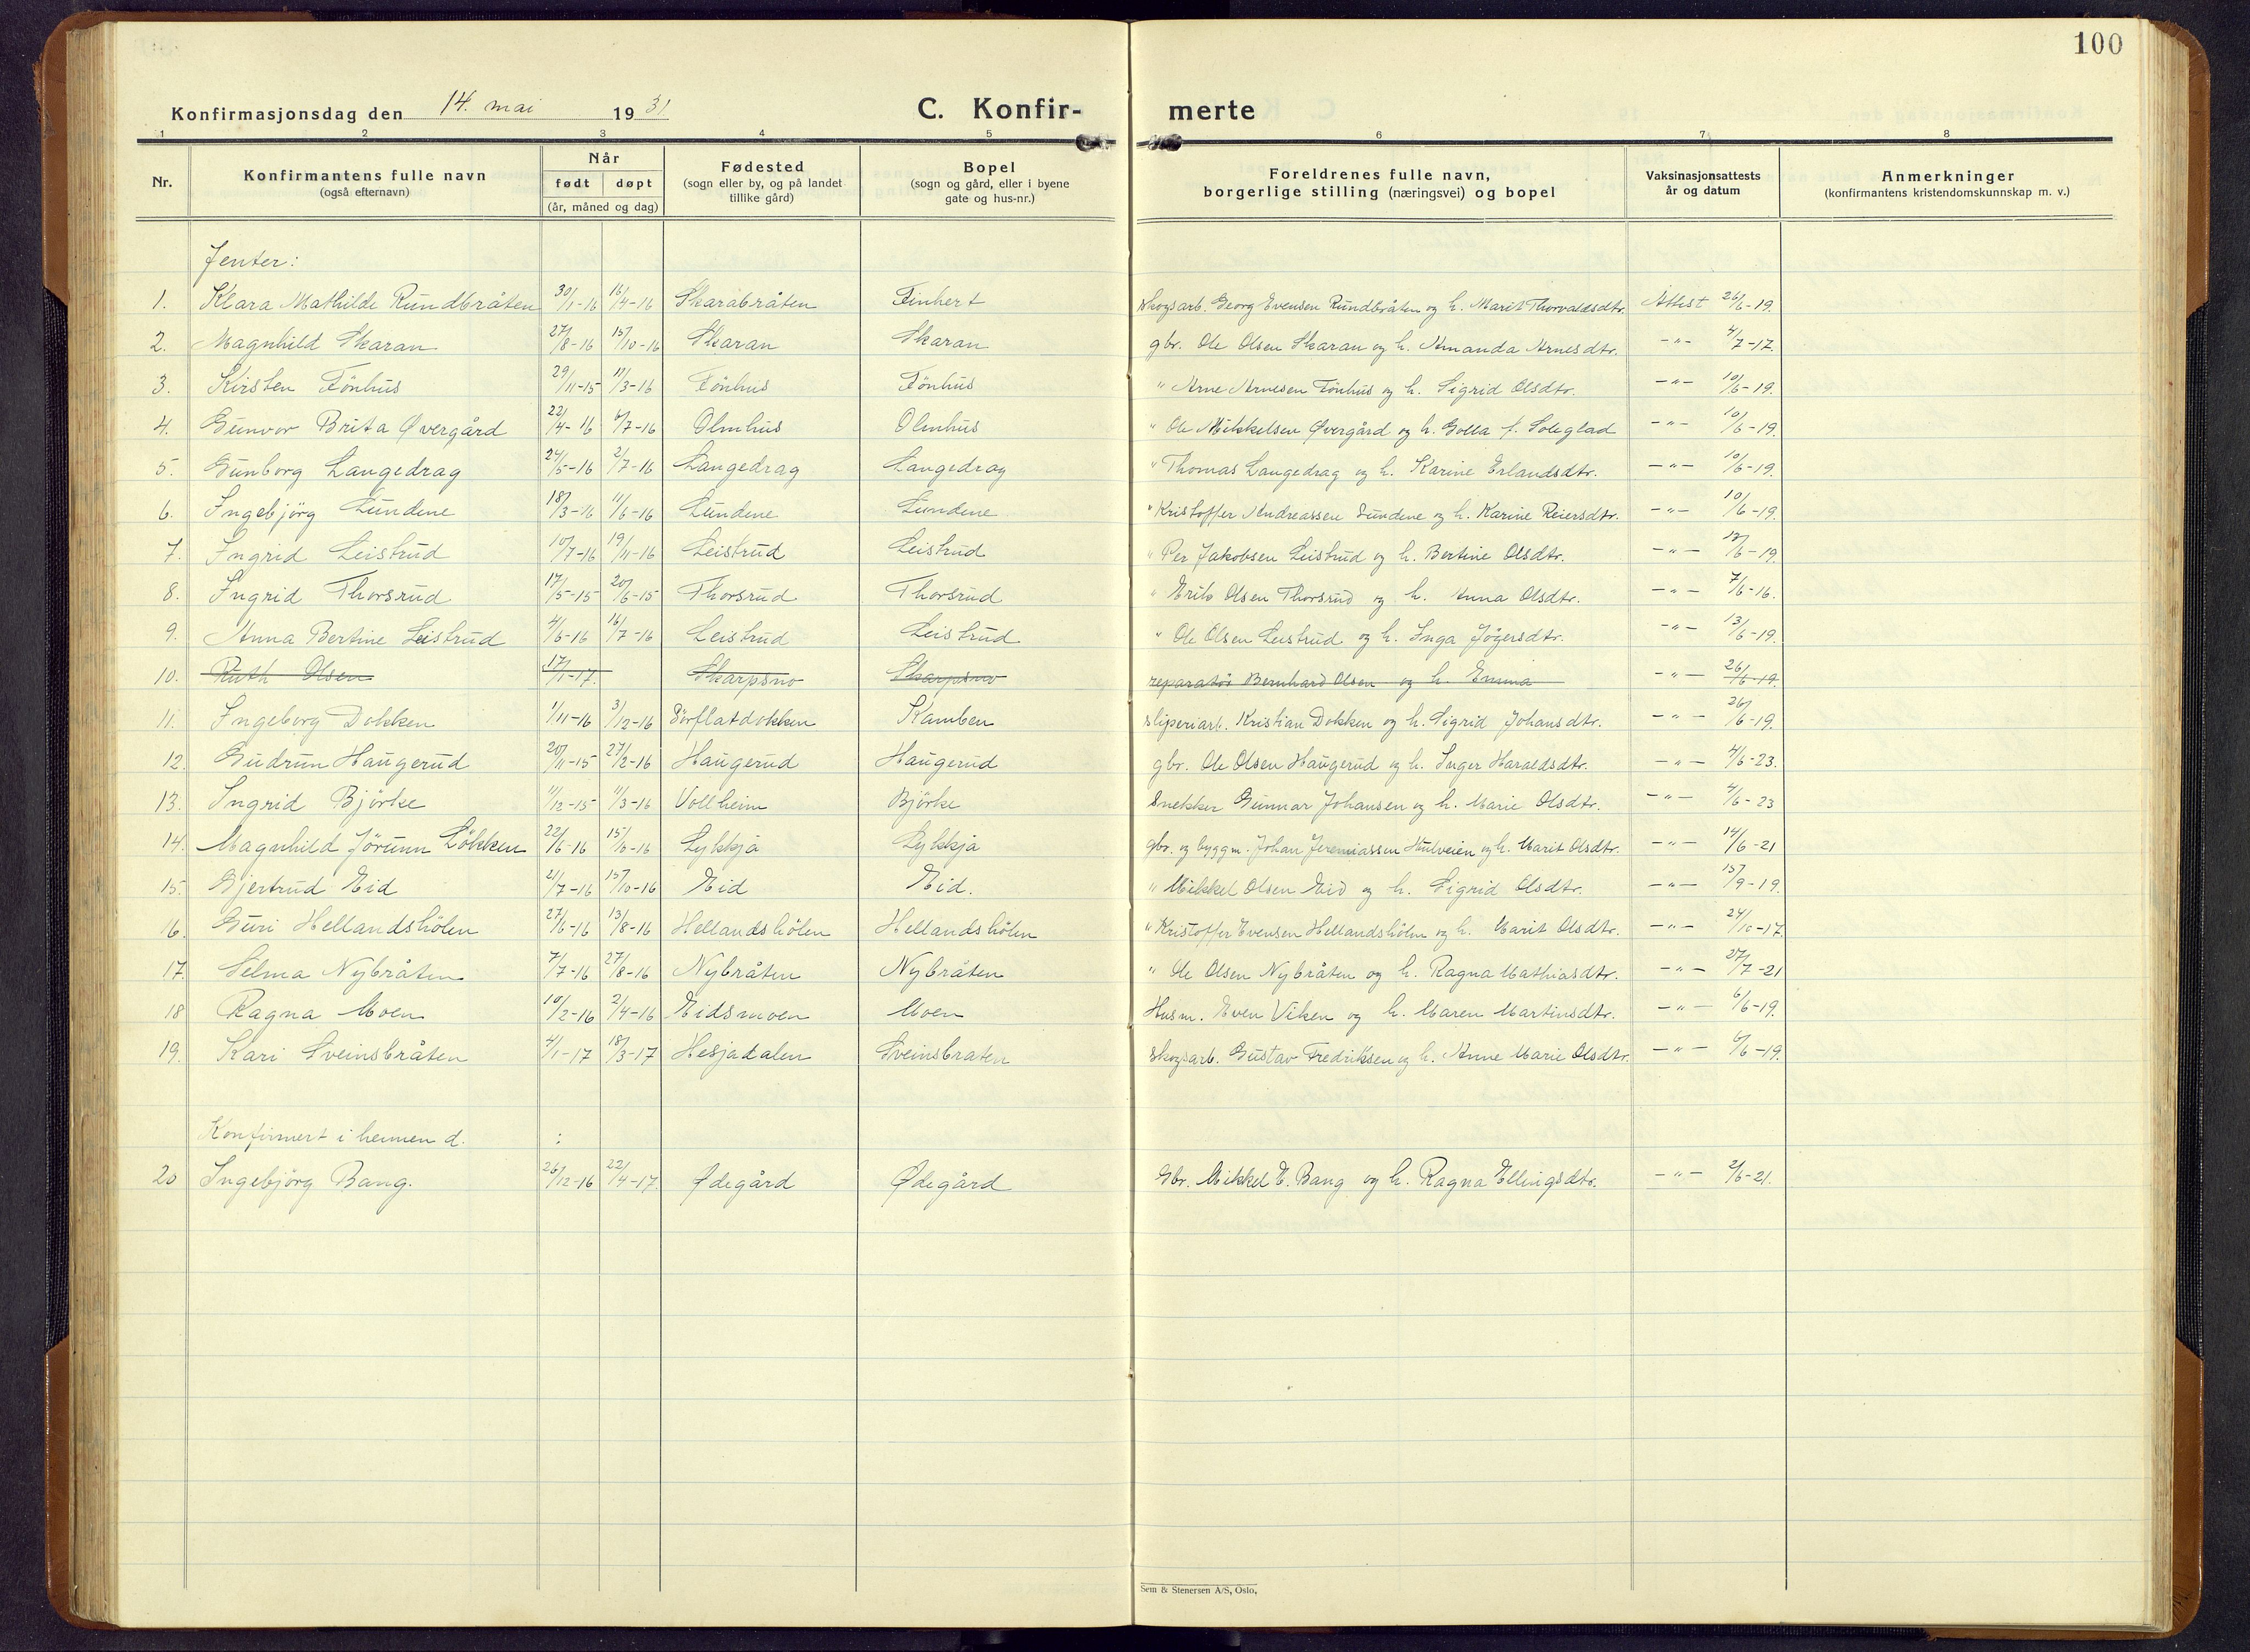 100
Konfirmasjonsdag den 14. mai 1931 C. Konfir- merte
1 2 3 4 5 6 7 8
Nr. Konfirmantens fulle navn (også efternavn) Når født døpt (år, måned og dag) Fødested (sogn eller by, og på landet tillike gård) Bopel (sogn og gård, eller i byene gate og hus-nr.) Foreldrenes fulle navn, borgerlige stilling (næringsvei) og bopel Vaksinasjonsattests år og datum Anmerkninger (konfirmantens kristendomskunnskap m. v.)
Jenter:
1. Klara Mathilde Rundbråten 30/1-16 16/4-16 Skarabråten Finhert skogsarb. Georg Evensen Rundbråten og h. Marit Thorvaldsdtr. Attest 26/6-19.
2. Magnhild Skaran 27/8-16 15/10-16 Skaran Skaran gbr. Ole Olsen Skaran og h. Amanda Arnesdtr. -"- 4/7-17.
3. Kirsten Tönhus 29/11-15 19/3-16 Tönhus Tönhus " Arne Arnesen Tönhus og h. Sigrid Olsdtr. -"- 10/6-19.
4. Gunvor Brita Øvergård 22/4-16 6/7-16 Olmhus Olmhus " Ole Mikkelsen Øvergård og h. Golla f. Soleglad -"- 10/6-19.
5. Gunborg Langedrag 24/5-16 2/7-16 Langedrag Langedrag " Thomas Langedrag og h. Karine Erlandsdtr. -"- 10/6-19.
6. Ingebjörg Lundene 18/3-16 11/6-16 Lundene Lundene " Kristoffer Andreassen Lundene og h. Karine Reiersdtr. -"- 10/6-19.
7. Ingrid Leistrud 10/7-16 19/11-16 Leistrud Leistrud " Per Jakobsen Leistrud og h. Bertine Olsdtr. -"- 13/6-19.
8. Ingrid Thorsrud 17/5-15 20/6-15 Thorsrud Thorsrud " Erik Olsen Thorsrud og h. Anna Olsdtr. -"- 7/6-16.
9. Anna Bertine Leistrud 4/6-16 16/7-16 Leistrud Leistrud " Ole Olsen Leistrud og h. Inga Jögersdtr. -"- 13/6-19.
10. Ruth Olsen 17/1-17. Skarpsno Skarpsno reparatör Bernhard Olsen og h. Emma -"- 26/6-19.
11. Ingeborg Dokken 1/11-16 3/12-16 Sörflatdokken Kamben sliperiarb. Kristian Dokken og h. Sigrid Johansdtr. -"- 26/6-19.
12. Gudrun Haugerud 20/11-15 27/2-16 Haugerud Haugerud gbr. Ole Olsen Haugerud og h. Inger Haraldsdtr. -"- 4/6-23.
13. Ingrid Björke 11/12-15 11/3-16 Vollheim Björke Snekker Gunnar Johansen og h. Marie Olsdtr. -"- 4/6-23
14. Magnhild Jörunn Lökken 22/6-16 15/6-16 Lykkja Lykkja gbr. og byggm. Johan Jeremiassen Hulveien og h. Marit Olsdtr. -"- 14/6-21
15. Gjertrud Eid 21/7-16 15/10-16 Eid Eid. " Mikkel Olsen Eid og h. Sigrid Olsdtr. -"- 15/9-19.
16. Guri Hellandshölen 27/6-16 13/8-16 Hellandshölen Hellandshölen " Kristoffer Evensen Hellandshölen og h. Marit Olsdtr. -"- 24/10-17.
17. Selma Nybråten 7/7-16 27/8-16 Nybråten Nybråten " Ole Olsen Nybråten og h. Ragna Mathiasdtr. -"- 27/7-21
18 Ragna Moen 10/2-16 2/4-16 Eidsmoen Moen Husm. Even Viken og h. Maren Martinsdtr. -"- 6/6-19.
19. Kari Sveinsbråten 4/1-17 18/3-17 Hesjadalen Sveinsbraten skogsarb. Gustav Fredriksen og h. Anne Marie Olsdtr. -"- 6/6-19.
Konfirmert i hemmen d. :
20 Ingebjörg Bang. 26/12-16 22/4-17. Ødegård Ødegård Gbr. Mikkel E. Bang og h. Ragna Ellingsdtr. -"- 2/6-21.
Sem & Stenersen A/S, Oslo,